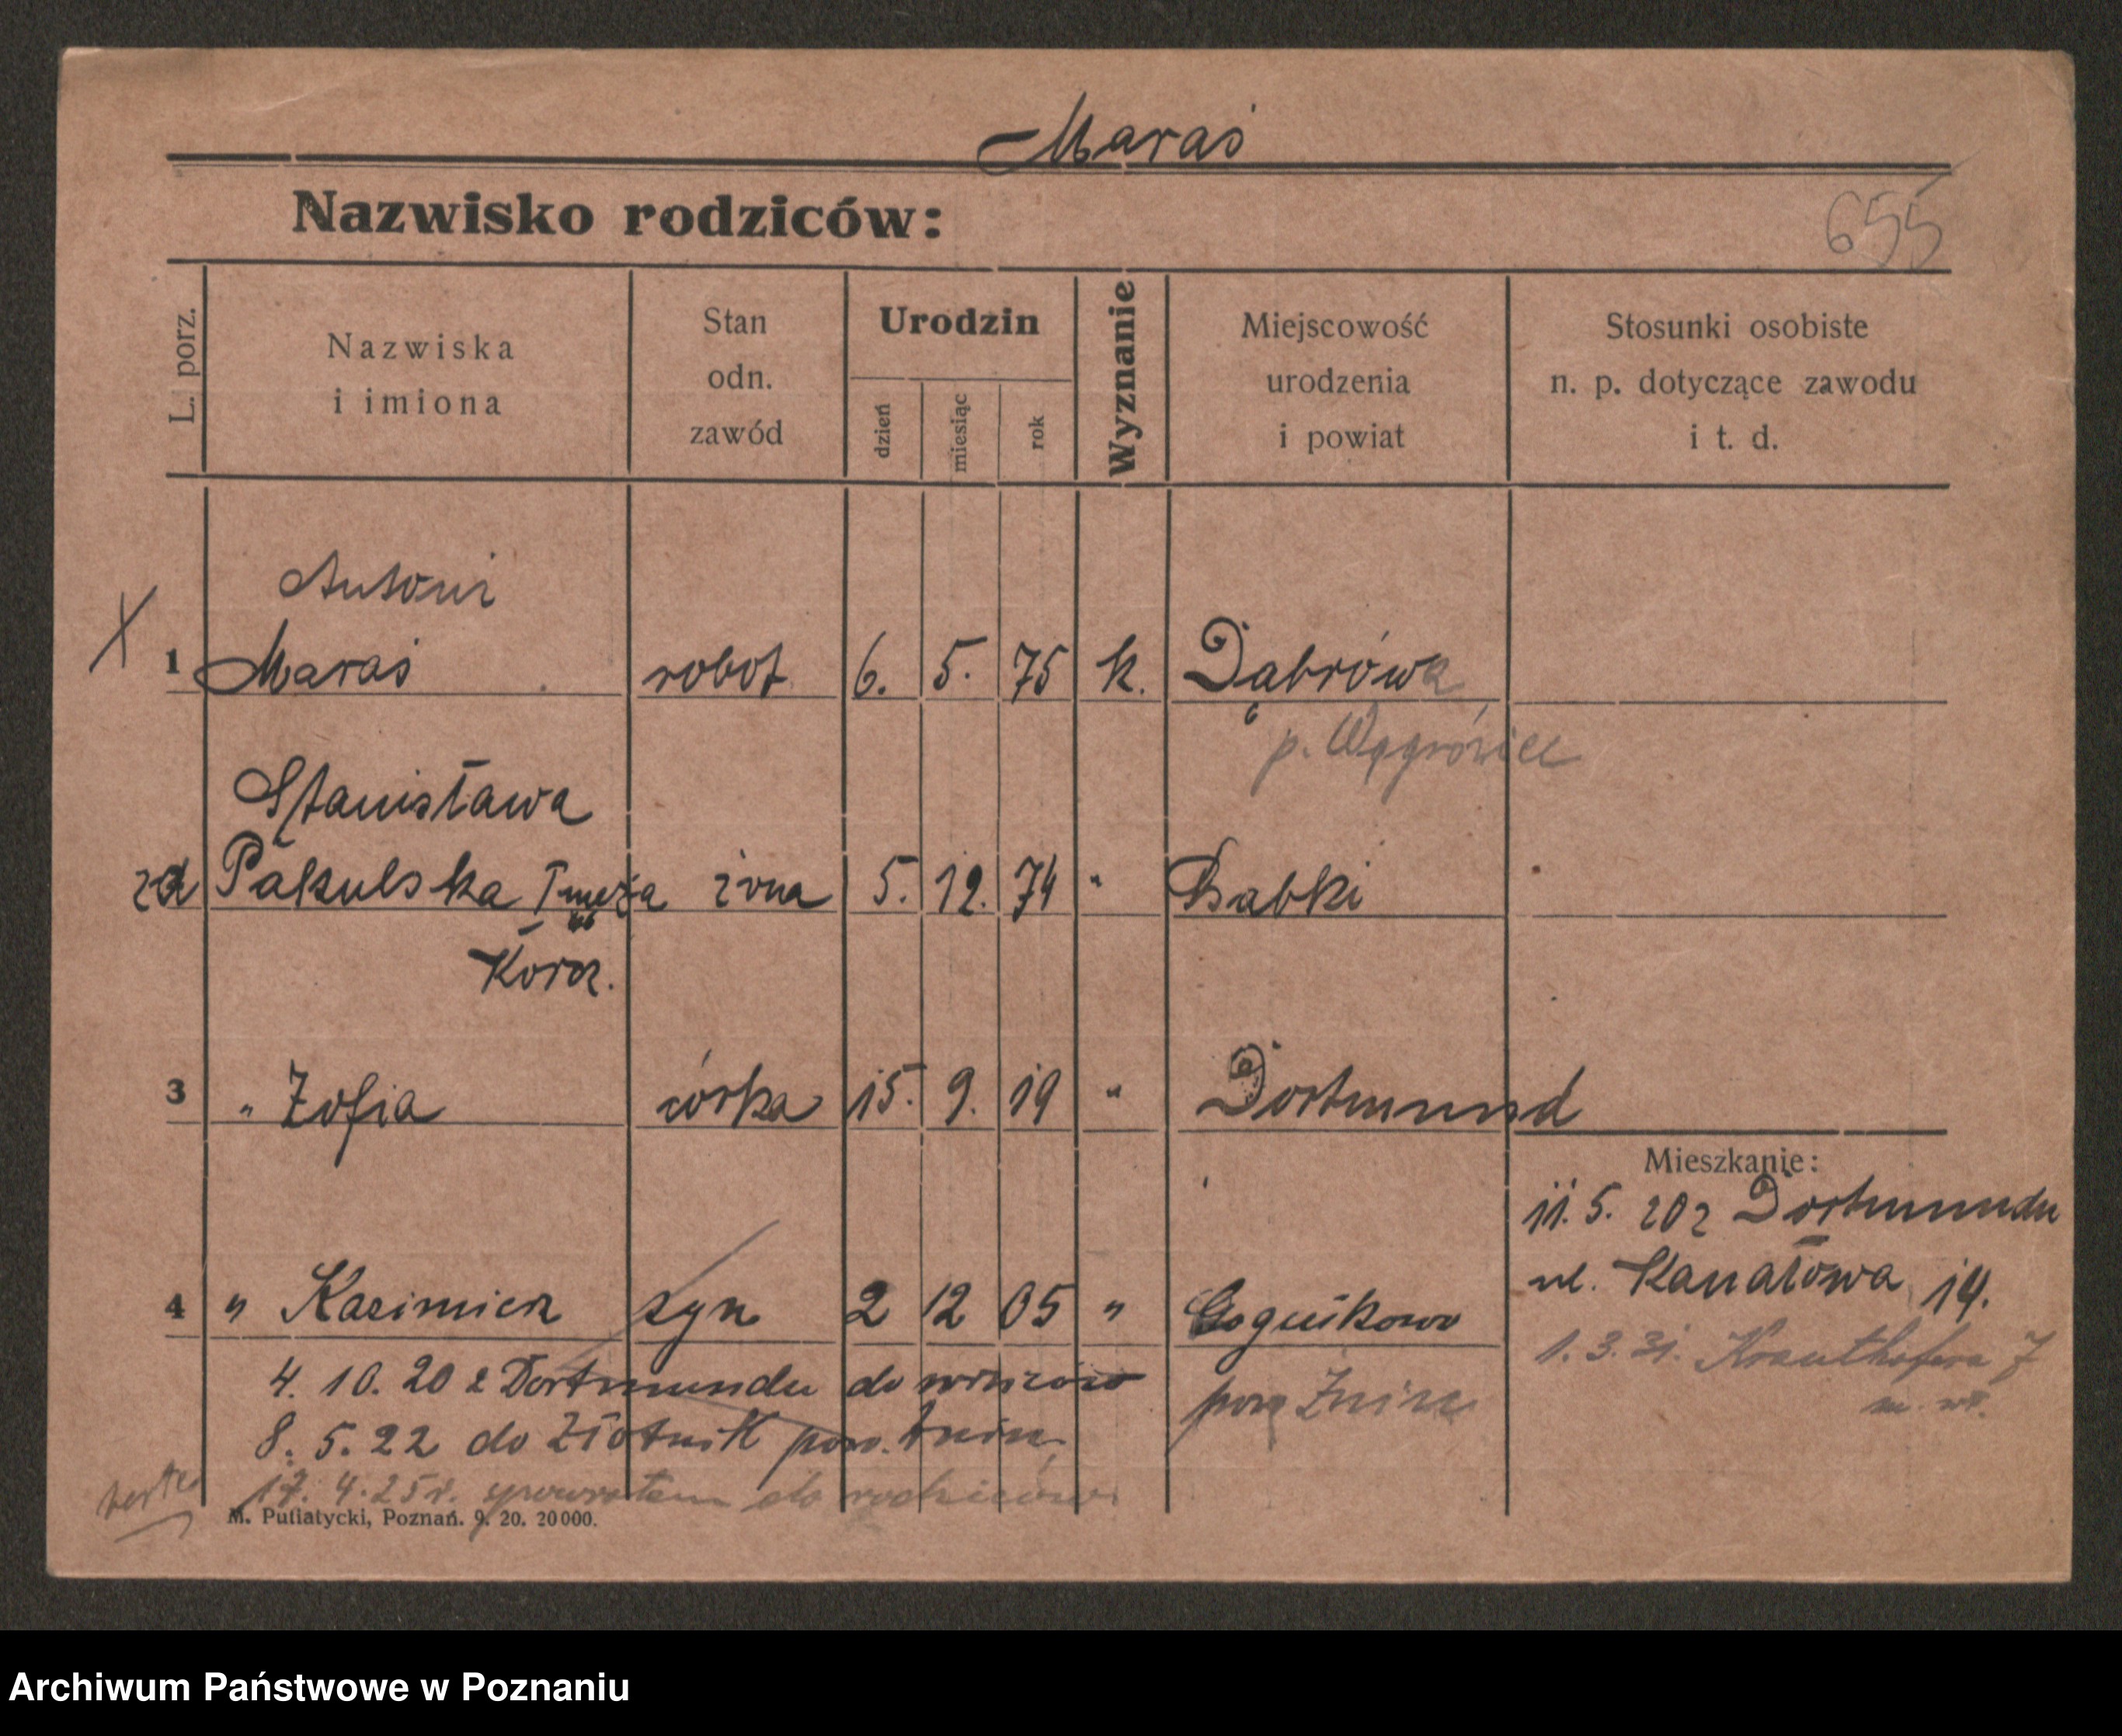 Maraś
Nazwisko rodziców:
655
L. porz.
Nazwiska
i imiona
Stan
odn.
zawód
Urodzin
dzień
miesiąc
rok
Wyznanie
Miejscowość
urodzenia
i powiat
Stosunki osobiste
n. p. dotyczące zawodu
i t. d.
Antoni
1 Maraś robot. 6. 5. 75 k. Dąbrówka
p. Wągrówiec
Stanisława
Pakulska I męża żona 5. 12. 74 " Babki
Korcz.
3 " Zofia córka 15. 9. 19 " Dortmund
Mieszkanie:
11. 5. 20 z Dortmundu
ul. Kanałowa 19.
4 " Kazimierz syn 2 12 05 " Gogułkowo
pow Żnin
1. 3. 31. Krauthofera 7
4. 10. 20 z Dortmundu do rodziców
8. 5. 22 do Złotnik pow. Żnin
17. 4. 25 r. spowrotem do rodziców
M. Putiatycki, Poznań. 9. 20. 20000.
Archiwum Państwowe w Poznaniu